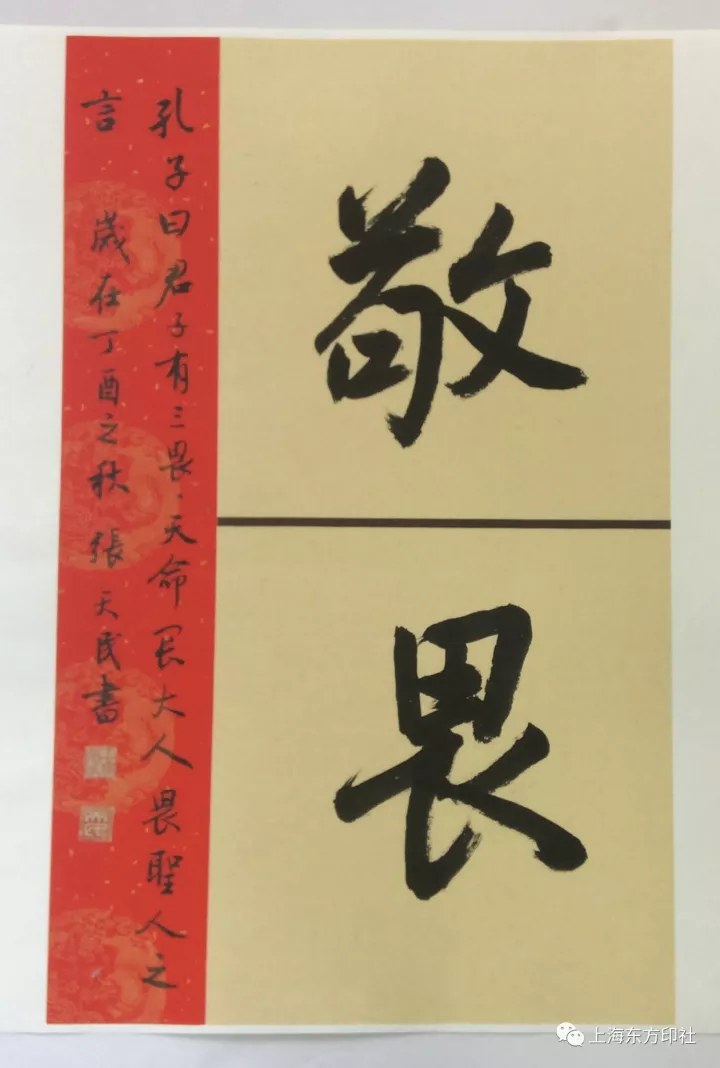 敬
畏
孔子曰君子有三畏、天命畏大人畏聖人之
言 歲在丁酉之秋 張天民書
上海东方印社